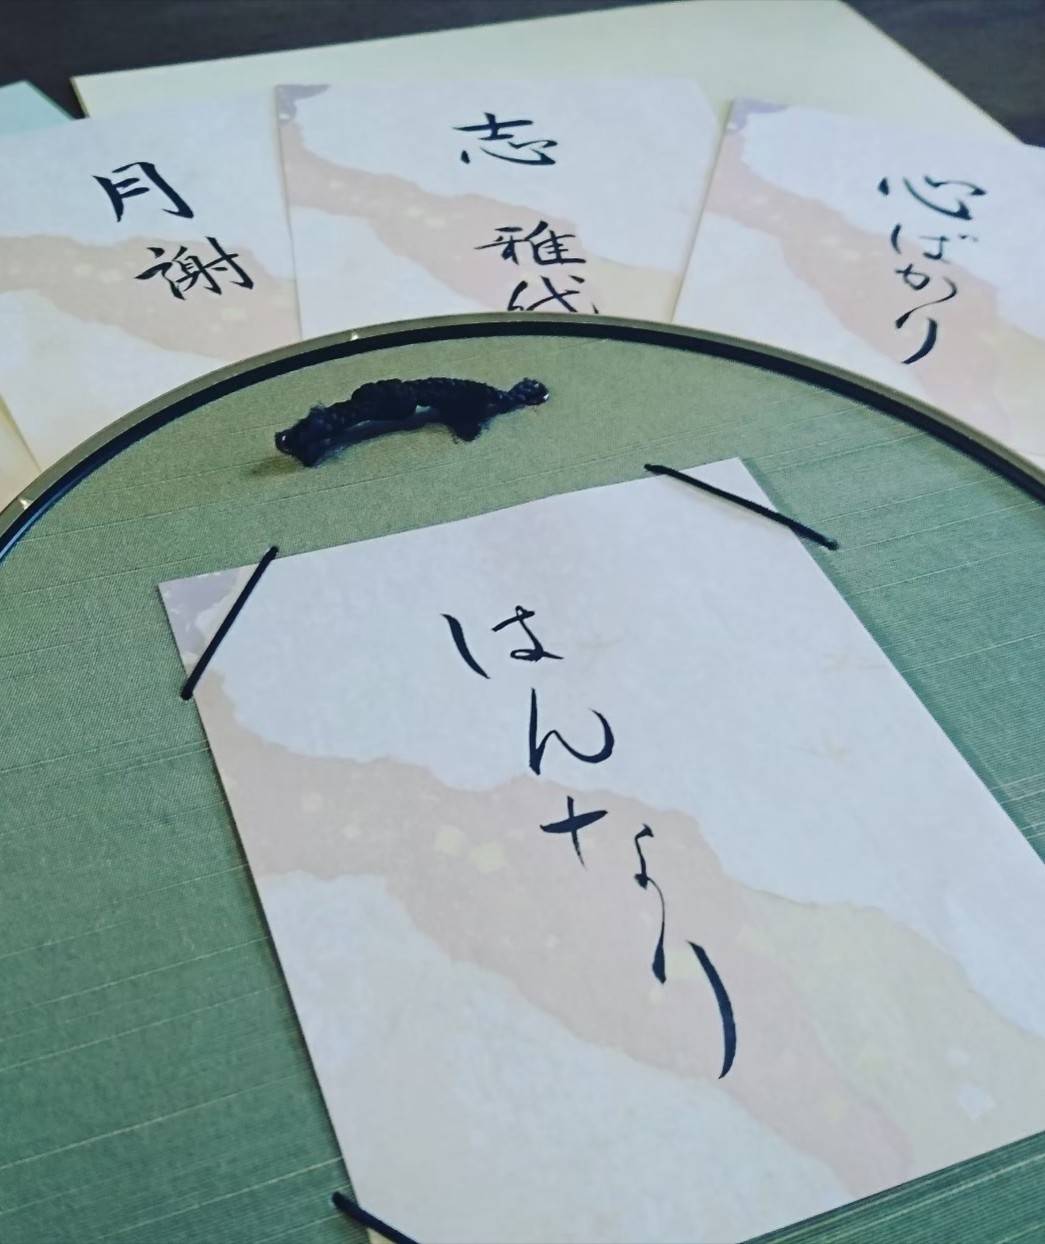 月謝
志 雅代
心ばかり
はんなり